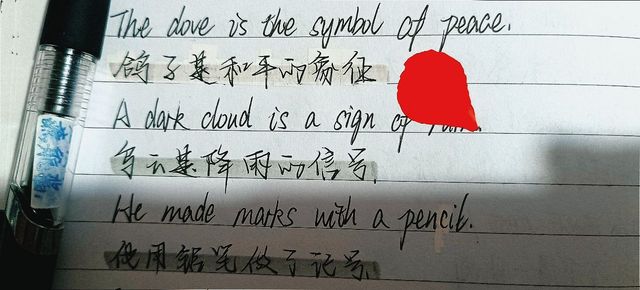 The dove is the symbol of peace.
鸽子是和平的象征
A dark cloud is a sign of
乌云是降雨的信号.
He made marks with a pencil.
他用铅笔做了记号.